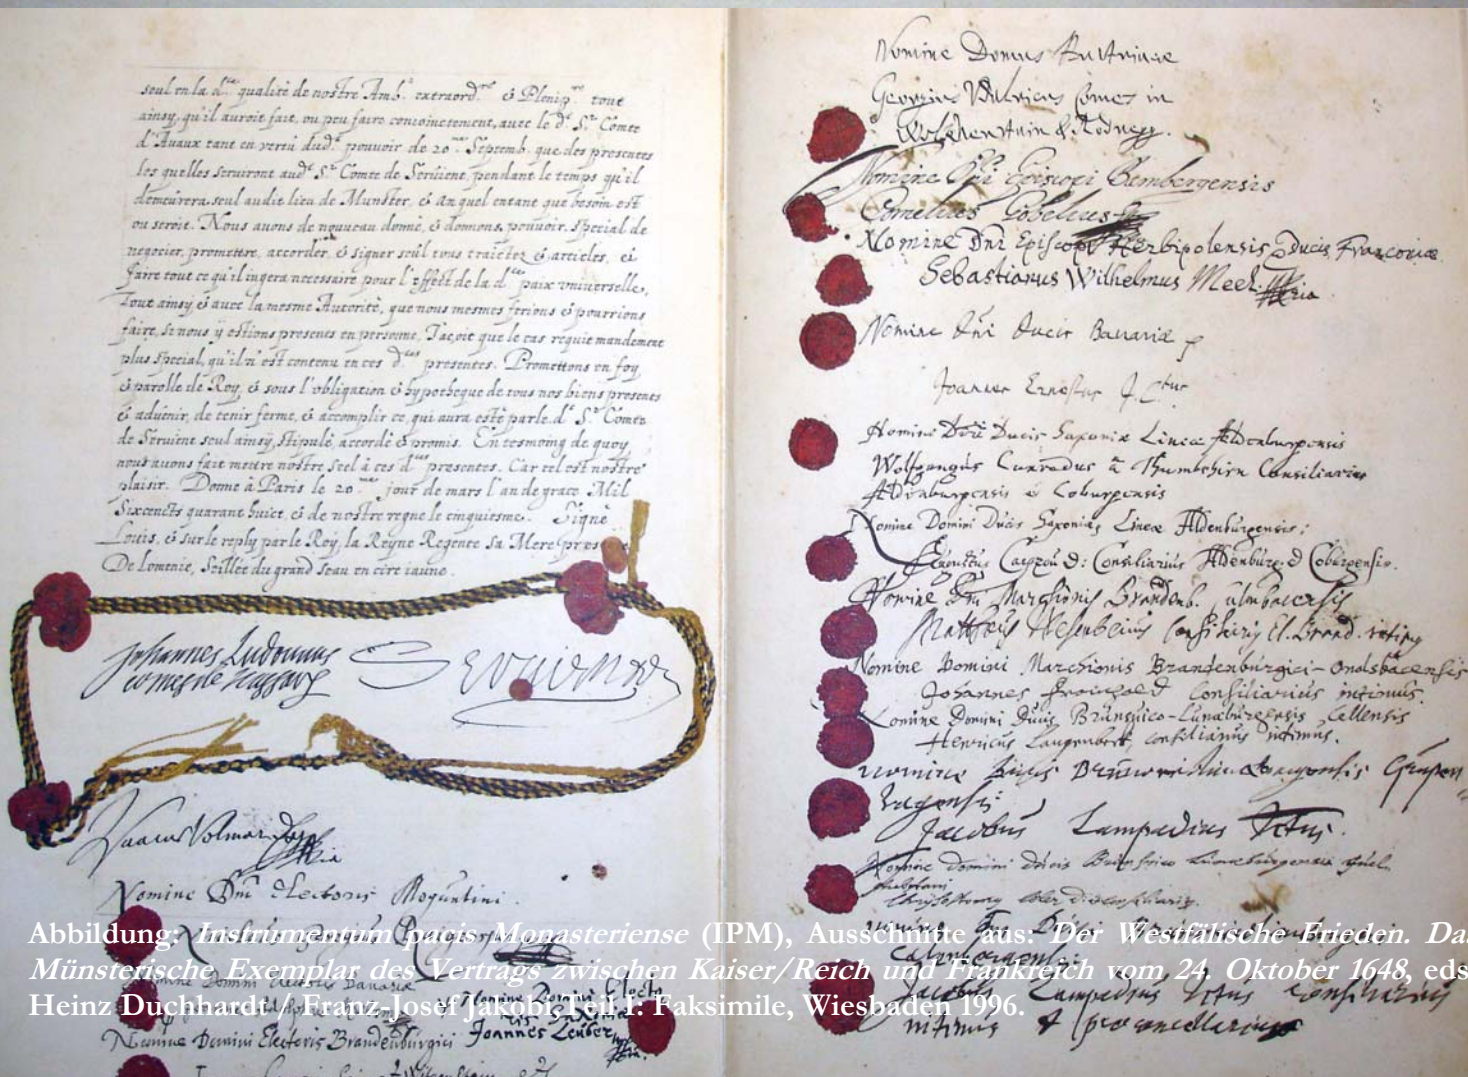 seul en la d.te qualité de nostre Amb.r extraord.re & Plenip.re tout
ainsy, qu'il auroit fait, ou peu faire conioinctement, avec le d.t S.r Comte
d'Avaux tant en vertu dud.t pouvoir de 20.me Septemb. que des presentes
les quelles serviront aud.t S.r Comte de Servient, pendant le temps qu'il
demeurera seul audit lieu de Munster, & an quel entant que besoin est
ou seroit. Nous avons de nouveau donné, & donnons, pouvoir, special de
negocier, promettre, accorder, & signer seul tous traictez & articles, &
faire tout ce qu'il iugera necessaire pour l'effect de la d.te paix universelle,
Tout ainsy, & avec la mesme Autorité, que nous mesmes ferions & pourrions
faire, si nous y estions presens en personne, Jaçoit que le cas requit mandement
plus special, qu'il n'est contenu en ces d.tes presentes. Promettons en foy
& parolle de Roy, & sous l'obligation & hypotheque de tous nos biens presents
& advenir, de tenir ferme, & accomplir ce, qui aura esté par le d.t S.r Comte
de Servient seul ainsy, stipulé, accordé & promis. En tesmoing de quoy
nous avons fait mettre nostre seel à ces d.tes presentes. Car tel est nostre
plaisir. Donné à Paris le 20.me jour de mars l'an de grace Mil
Sixcents quarant huict, & de nostre regne le cinquiesme. Signé
Louis, & sur le reply par le Roy, la Reyne Regente Sa Mere
De Lomenie, Scillée du grand seau en cire iaune.
Johannes Ludovicus
comes de Nassau
Servient
Isaacus Volmar
Nomine Dni Electoris Moguntini.
Nomine Domini Electoris Bavariae
Nomine Domini Electoris Brandenburgici
Joannes Leuber
Nomine Domus Austriacae
Georgius Ulricus Comes in
Wolkhenstain & Rodnegg.
Nomine Dni Episcopi Bambergensis
Cornelius Gobelius
Nomine Dni Episcopi Herbipolensis Ducis Franconiae.
Sebastianus Wilhelmus Meel
Nomine Dni Ducis Bavariae
Joannes Ernestus J.Ctus
Nomine Dni Ducis Saxoniae Lineae Aldenburgensis
Wolfgangus Cunradus à Thumbshirn Consiliarius
Aldenburgensis & Coburgensis
Nomine Domini Ducis Saxoniae Lineae Aldenburgensis:
Augustus Carpzou D: Consiliarius Aldenburg. & Coburgensis.
Nomine Dni Marchionis Brandenb. Culmbacensis
Matthaeus Wesenbecius Consiliarius El. Brand. intimus
Nomine Domini Marchionis Brandenburgici-Onolsbacensis
Johannes Fromhold Consiliarius intimus.
Nomine Domini Ducis Brunsuico-Lunaeburgensis Cellensis
Henricus Langenbeck, consiliarius intimus.
Nomine Ducis
Jacobus Lampadius Jctus.
Nomine Domini Ducis
Jacobus Lampadius Jctus consiliarius
intimus & procancellarius
Abbildung: Instrumentum pacis Monasteriense (IPM), Ausschnitte aus: Der Westfälische Frieden. Das
Münsterische Exemplar des Vertrags zwischen Kaiser/Reich und Frankreich vom 24. Oktober 1648, eds
Heinz Duchhardt / Franz-Josef Jakobi, Teil I: Faksimile, Wiesbaden 1996.